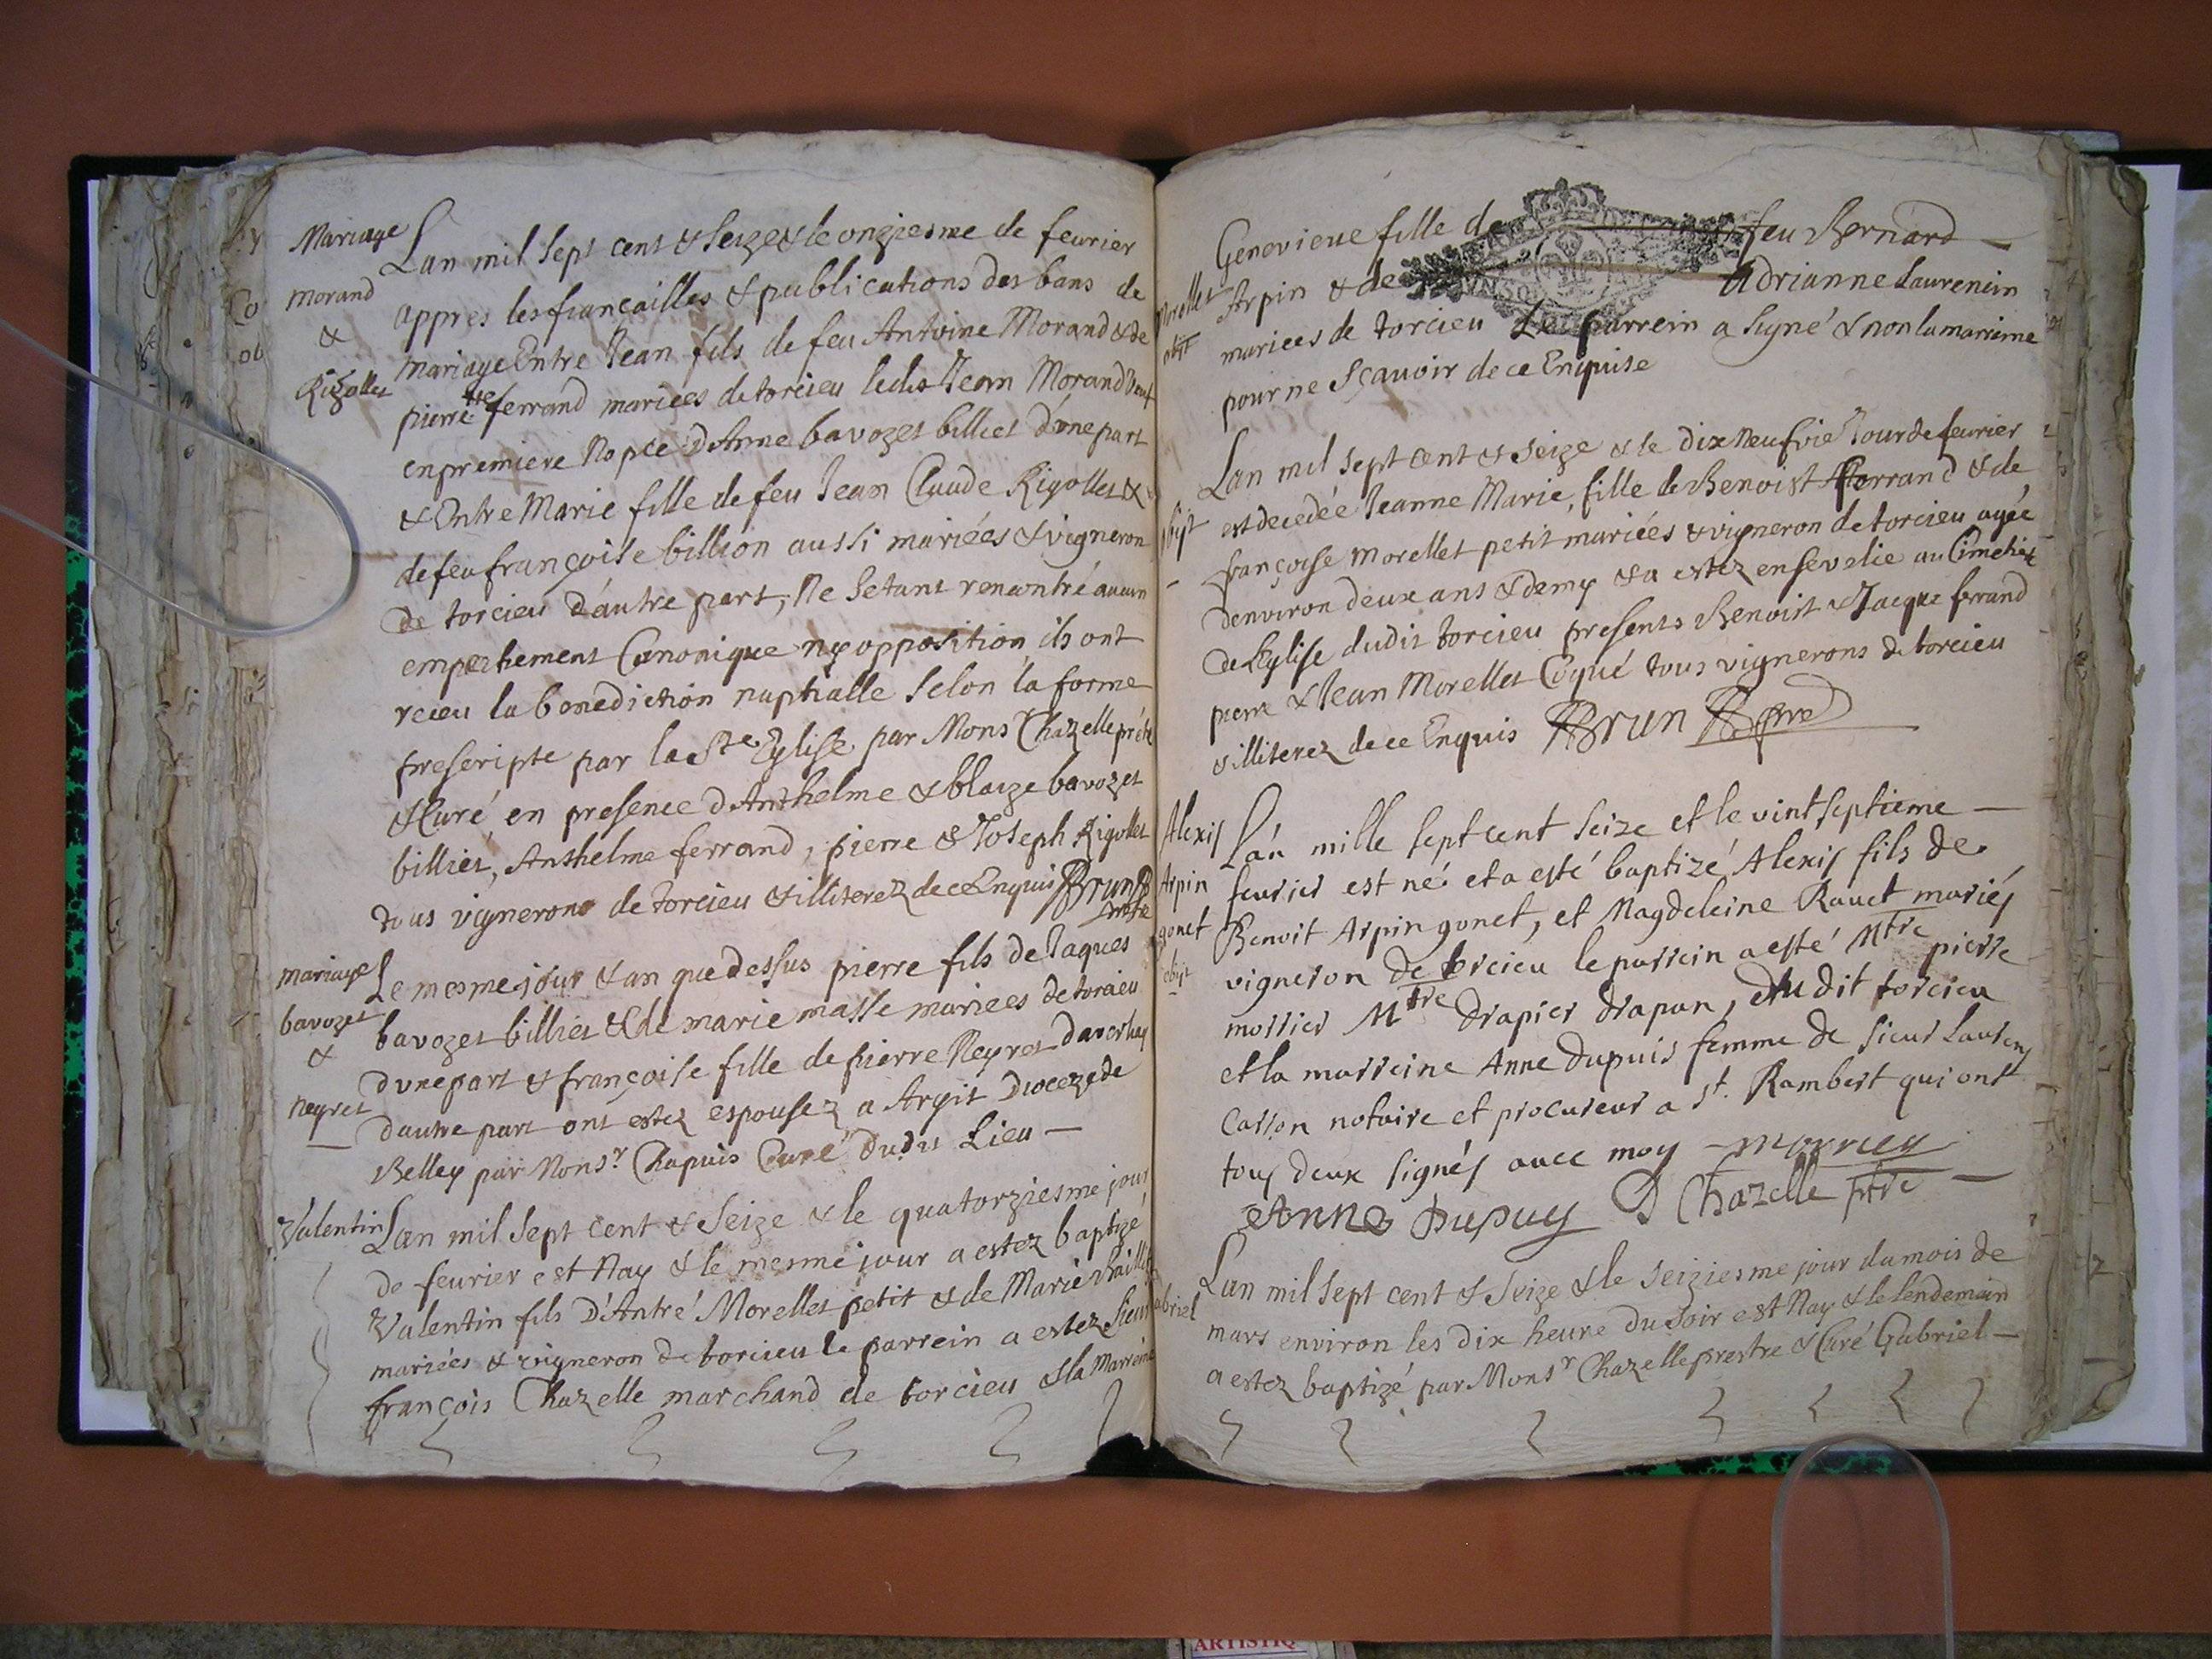 Mariage
Morand
&
Rigollet
Lan mil sept cent & seize & le onziesme de feurier
appres les fiancailles & publications des bans de
mariage Entre Jean fils de feu Antoine Morand & de
pierrette ferrand mariees de torcieu ledit Jean Morand veuf
en premiere Nopce D'Anne bavozet billiet d'une part
& Entre Marie fille de feu Jean Claude Rigollet &
de feu françoise billion aussi mariées & vigneron
de torcieu d'autre part, Ne setant rencontré aucun
empechement Canonique ny opposition ils ont
receu la benediction nuptialle selon la forme
prescripte par la Ste Eglise par Mons Chazelle prêtre
& Curé en presence d'Anthelme & blaize bavozet
billiet, Anthelme ferrand, pierre & Joseph Rigollet
tous vignerons de torcieu & illiterez de ce Enquis Brun
mariage
bavozet
&
neyret
Le mesme jour & an que dessus pierre fils de Jaques
bavozet billiet & de marie masse mariees de torcieu
d'une part & françoise fille de pierre Neyret
d'autre part ont estez espousez a Argit Dioceze de
Belley par Monsr Chapuis Curé Dudit Lieu —
Valentin
Lan mil sept cent & seize & le quatorziesme jour
de feurier est Nay & le mesme jour a estez baptizé
Valentin fils D'Antré Morellet petit & de Marie
mariées & vigneron de torcieu le parrein a estez sieur
françois Chazelle marchand de torcieu & la Marreine
Genevieue fille de feu Bernard —
Arpin & de Adrianne Laurencin
mariees de torcieu Le parrein a signé & non la marreine
pour ne sçauoir de ce Enquise
Morellet
obijt
obijt
Lan mil sept cent & seize & le dix neufvie Jour de feurier
est decedée Jeanne Marie, fille de Benoist ferrand & de
françoise Morellet petit mariées & vigneron de torcieu agée
d'environ deux ans & demy & a estez ensevelie au Cimetiere
de L'Eglise dudit torcieu presents Benoist & Jacque ferrand
pierre & Jean Morellet Coqué tous vignerons de torcieu
& illiterez de ce Enquis Brun
Alexis
Arpin
gonet
obijt
L'an mille sept cent seize et le vint septieme —
feurier est né et a esté baptizé Alexis fils de
Benoit Arpin gonet, et Magdeleine Rauet mariés
vigneron de torcieu le parrein a esté Mtre pierre
morrier Mtre drapier drapan, du dit torcieu
et la marreine Anne Dupuis femme de sieur Laurens
Carron notaire et procureur a st. Rambert qui ont
tous deux signés auec moy — morrier
Anne Dupuy D Chazelle ptre —
Gabriel
Lan mil sept cent & seize & le seiziesme jour du mois de
mars environ les dix heure du soir est Nay & le lendemain
a estez baptizé par Monsr Chazelle prestre & Curé Gabriel —
ARTISTIQ